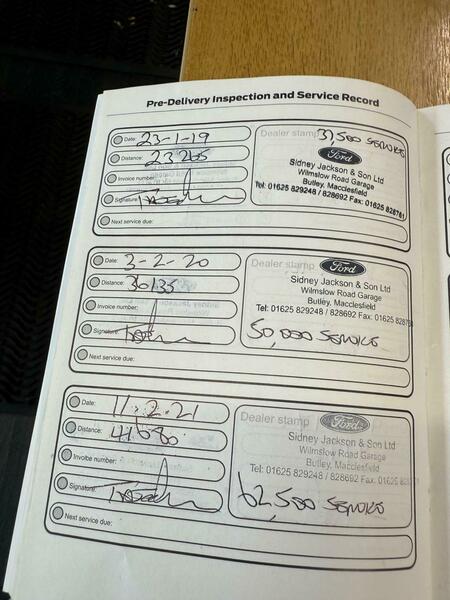 Pre-Delivery Inspection and Service Record
Date: 23-1-19
Distance: 23265
Invoice number:
Signature:
Next service due:
Dealer stamp 37,500 SERVICE
Ford
Sidney Jackson & Son Ltd
Wilmslow Road Garage
Butley, Macclesfield
Tel: 01625 829248 / 828692 Fax: 01625 828761
Date: 3-2-20
Distance: 36135
Invoice number:
Signature:
Next service due:
Dealer stamp
Ford
Sidney Jackson & Son Ltd
Wilmslow Road Garage
Butley, Macclesfield
Tel: 01625 829248 / 828692 Fax: 01625 8287
50,000 SERVICE
Date: 11.2.21
Distance: 41680
Invoice number:
Signature:
Next service due:
Dealer stamp
Ford
Sidney Jackson & Son Ltd
Wilmslow Road Garage
Butley, Macclesfield
Tel: 01625 829248 / 828692 Fax: 01625
62,500 SERVICE